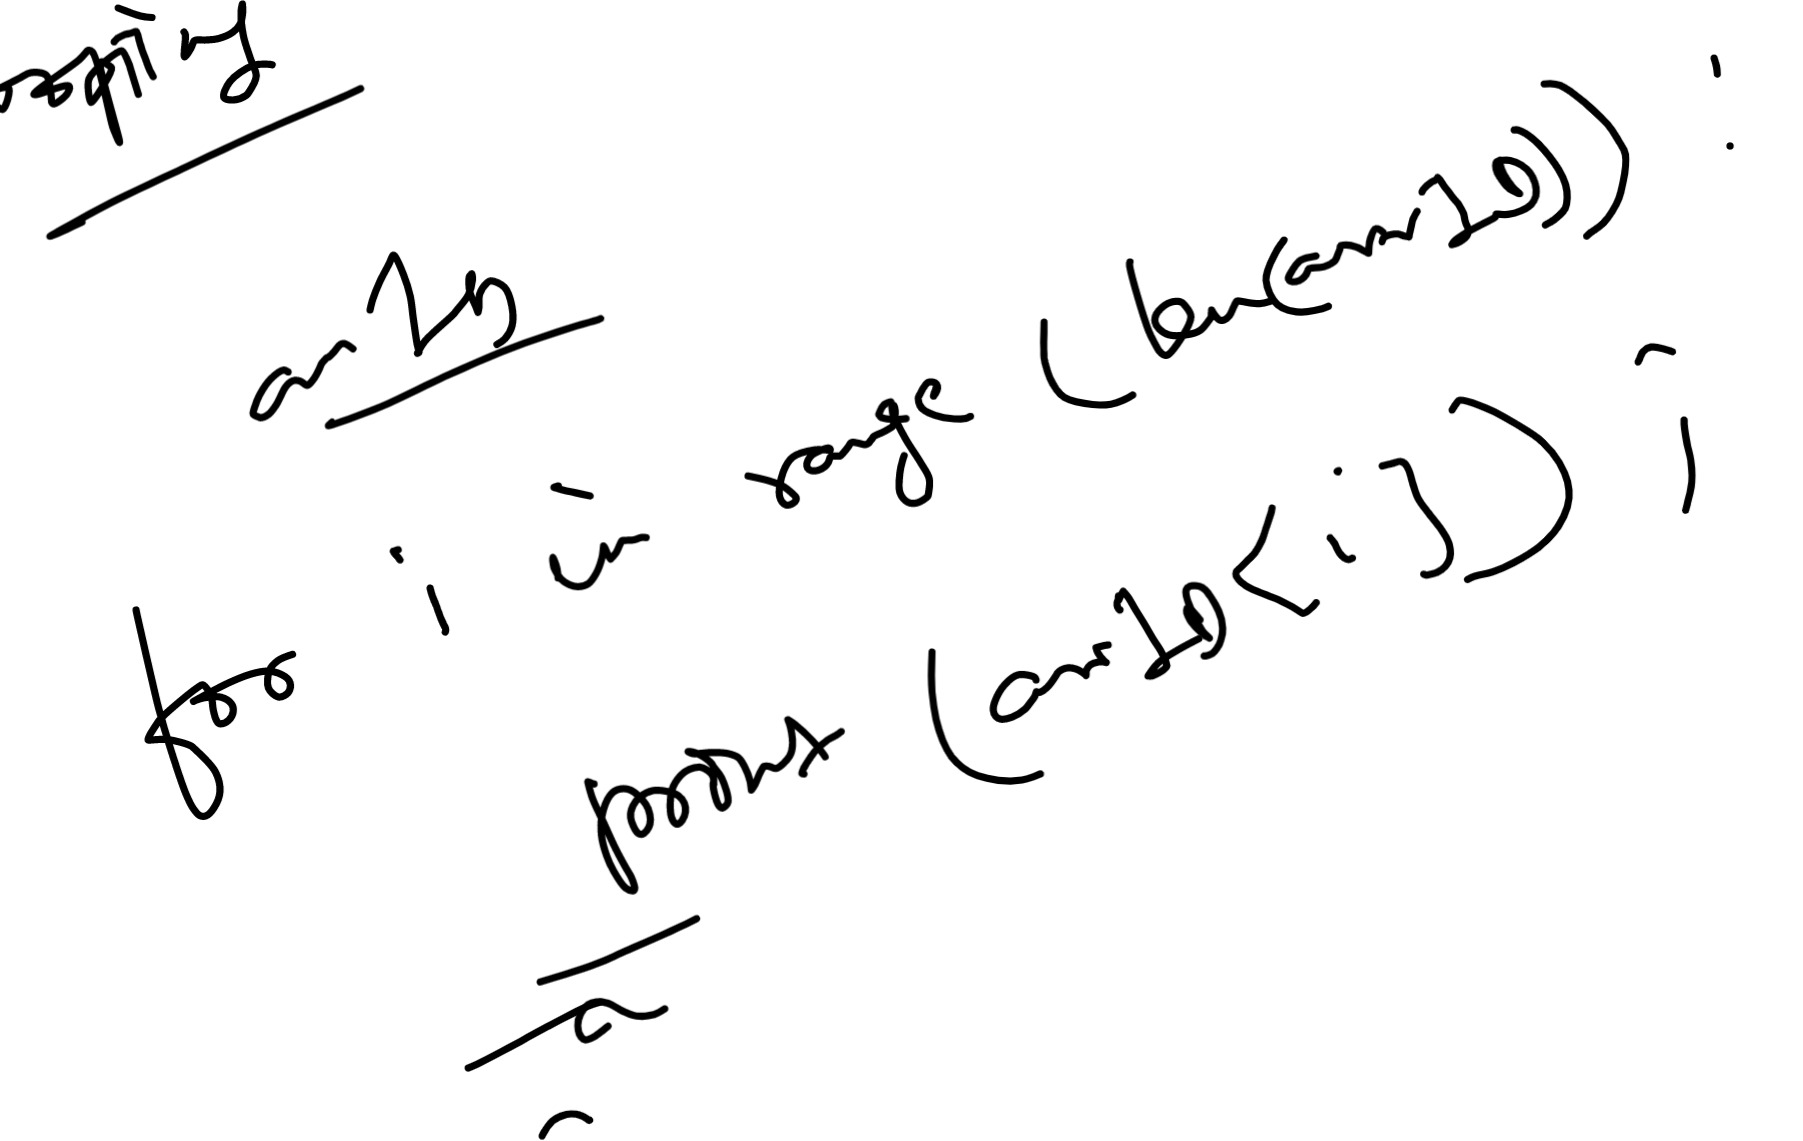 arr2D
for i in range (len(arr1D)):
print (arr1D[i])